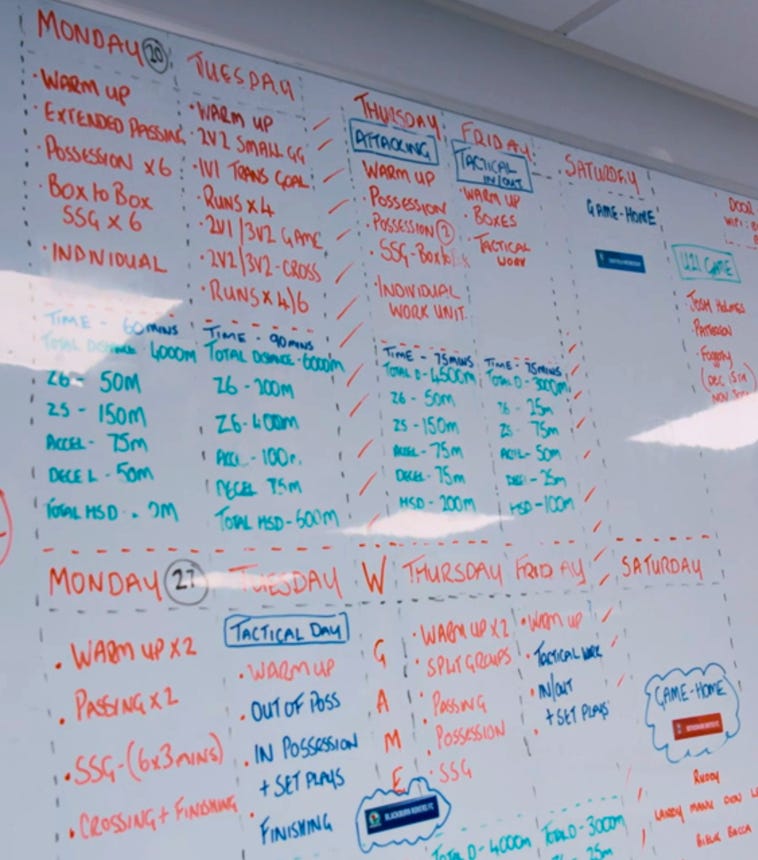 MONDAY 20
· WARM UP
· EXTENDED PASSING
· POSSESSION X6
· BOX to BOX
SSG X 6
· INDIVIDUAL
TIME - 60MINS
TOTAL DISTANCE - 4000M
Z6 - 50M
Z5 - 150M
ACCEL - 75M
DECEL - 50M
TOTAL HSD
TUESDAY
· WARM UP
· 2V2 SMALL GG
· 1V1 TRANS GOAL
RUNS X 4
· 2V1 / 3V2 GAME
· 2V2 / 3V2 - CROSS
· RUNS X 4/6
TIME - 90MINS
TOTAL DISTANCE - 6000M
Z6 - 200M
Z6 - 400M
ACCL - 100
DECEL 75M
TOTAL HSD - 600M
THURSDAY
ATTACKING
WARM UP
· POSSESSION
· POSSESSION 2
· SSG - BOX to
· INDIVIDUAL
WORK UNIT
TIME - 75MINS
TOTAL D - 4500M
Z6 - 50M
Z5 - 150M
ACCEL - 75M
DECEL - 75M
HSD - 200M
FRIDAY
TACTICAL
IN/OUT
· WARM UP
· BOXES
· TACTICAL
WORK
TIME - 75MINS
TOTAL D - 3000M
Z6 - 25M
Z5 - 75M
ACCEL - 50M
DECEL - 25M
HSD - 100M
SATURDAY
GAME - HOME
DOOR
WIFI :
U21 GAME
· JOSH HOLMES
PATTERSON
· Fogarty
MONDAY 27
· WARM UP X2
· PASSING X2
· SSG - (6x3mins)
· CROSSING + FINISHING
TUESDAY
TACTICAL DAY
· WARM UP
· OUT OF POSS
· IN POSSESSION
+ SET PLAYS
· FINISHING
W
G
A
M
E
BLACKBURN ROVERS FC
THURSDAY
· WARM UP X2
· SPLIT GROUPS
· PASSING
· POSSESSION
· SSG
TOTAL D - 4000M
FRIDAY
· WARM UP
· TACTICAL WORK
· IN/OUT
+ SET PLAYS
TOTAL D - 3000M
25M
SATURDAY
GAME - HOME
ROTHERHAM UNITED FC
RUDDY